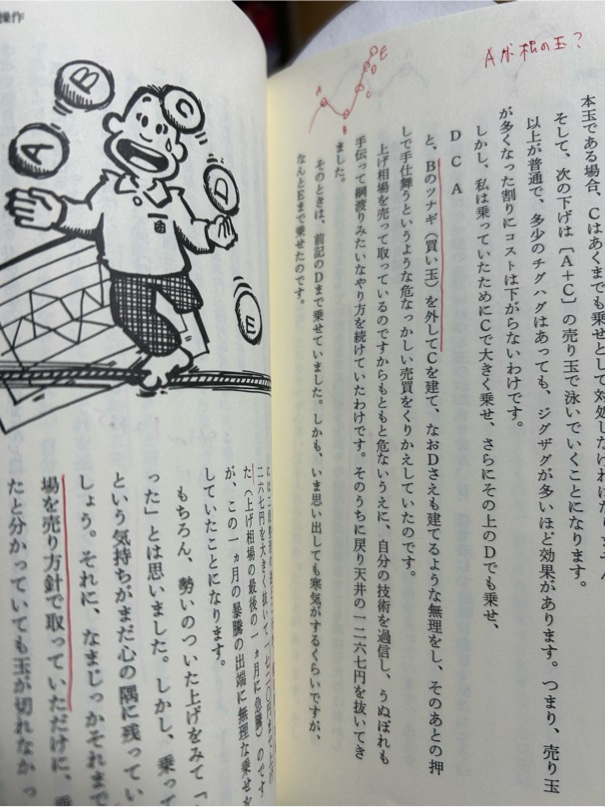 A が 根の玉?
A
B
C
D
E
本玉である場合、Cはあくまでも乗せとして対処しなければなりません
そして、次の下げは〔A+C〕の売り玉で泳いでいくことになります。
以上が普通で、多少のチグハグはあっても、ジグザグが多いほど効果があります。つまり、売り玉
が多くなった割りにコストは下がらないわけです。
しかし、私は乗っていたためにCで大きく乗せ、さらにその上のDでも乗せ、
D C A
と、Bのツナギ(買い玉)を外してCを建て、なおDさえも建てるような無理をし、そのあとの押
しで手仕舞うというような危なっかしい売買をくりかえしていたのです。
上げ相場を売って取っているのですからもともと危ないうえに、自分の技術を過信し、うぬぼれも
手伝って綱渡りみたいなやり方を続けていたわけです。そのうちに戻り天井の一二六七円を抜いてき
ました。
そのときは、前記のDまで乗せていました。しかも、いま思い出しても寒気がするくらいですが、
なんとEまで乗せたのです。
操作
B
C
A
D
E
二六七円を大きく抜いて、
た(上げ相場の最後の一ヵ月に急騰)のです
が、この一ヵ月の暴騰の出端に無理な乗せを
していたことになります。
もちろん、勢いのついた上げをみて「
った」とは思いました。しかし、乗って
という気持ちがまだ心の隅に残ってい
しょう。それに、なまじっかそれまで
場を売り方針で取っていただけに、乗
たと分かっていても玉が切れなかっ